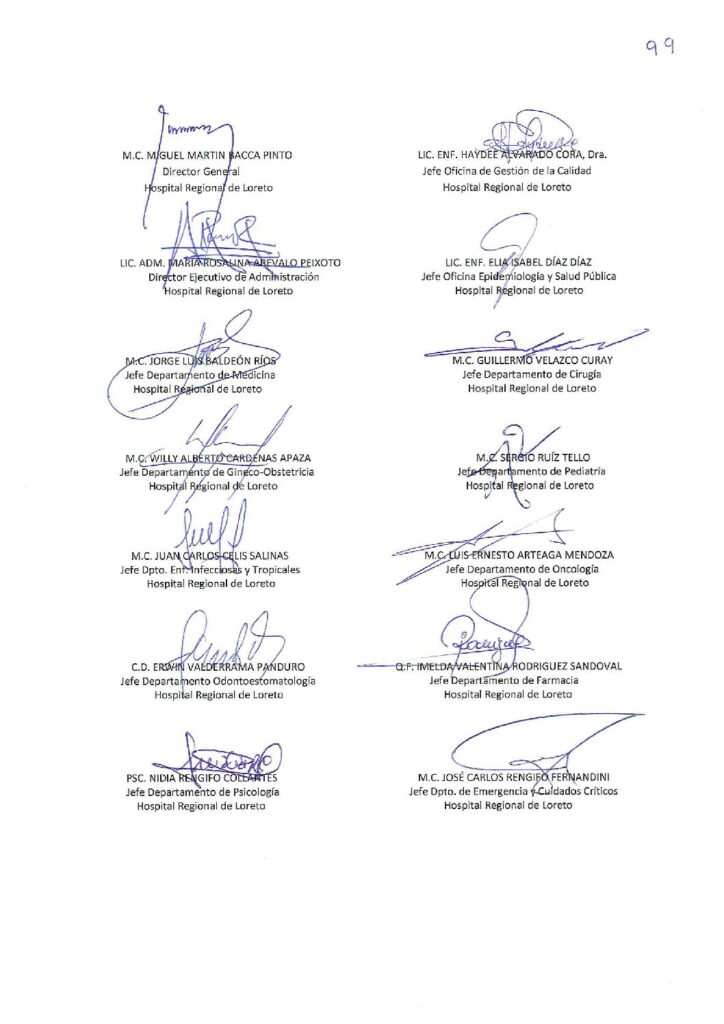 99
M.C. MIGUEL MARTIN BACCA PINTO
Director General
Hospital Regional de Loreto
LIC. ENF. HAYDEE ALVARADO CORA, Dra.
Jefe Oficina de Gestión de la Calidad
Hospital Regional de Loreto
LIC. ADM. MARIA ROSALINA AREVALO PEIXOTO
Director Ejecutivo de Administración
Hospital Regional de Loreto
LIC. ENF. ELIA ISABEL DÍAZ DÍAZ
Jefe Oficina Epidemiología y Salud Pública
Hospital Regional de Loreto
M.C. JORGE LUIS BALDEÓN RÍOS
Jefe Departamento de Medicina
Hospital Regional de Loreto
M.C. GUILLERMO VELAZCO CURAY
Jefe Departamento de Cirugía
Hospital Regional de Loreto
M.C. WILLY ALBERTO CARDENAS APAZA
Jefe Departamento de Gineco-Obstetricia
Hospital Regional de Loreto
M.C. SERGIO RUÍZ TELLO
Jefe Departamento de Pediatría
Hospital Regional de Loreto
M.C. JUAN CARLOS CELIS SALINAS
Jefe Dpto. Enf. Infecciosas y Tropicales
Hospital Regional de Loreto
M.C. LUIS ERNESTO ARTEAGA MENDOZA
Jefe Departamento de Oncología
Hospital Regional de Loreto
C.D. ERWIN VALDERRAMA PANDURO
Jefe Departamento Odontoestomatología
Hospital Regional de Loreto
Q.F. IMELDA VALENTINA RODRIGUEZ SANDOVAL
Jefe Departamento de Farmacia
Hospital Regional de Loreto
PSC. NIDIA RENGIFO COLLANTES
Jefe Departamento de Psicología
Hospital Regional de Loreto
M.C. JOSÉ CARLOS RENGIFO FERNANDINI
Jefe Dpto. de Emergencia y Cuidados Críticos
Hospital Regional de Loreto